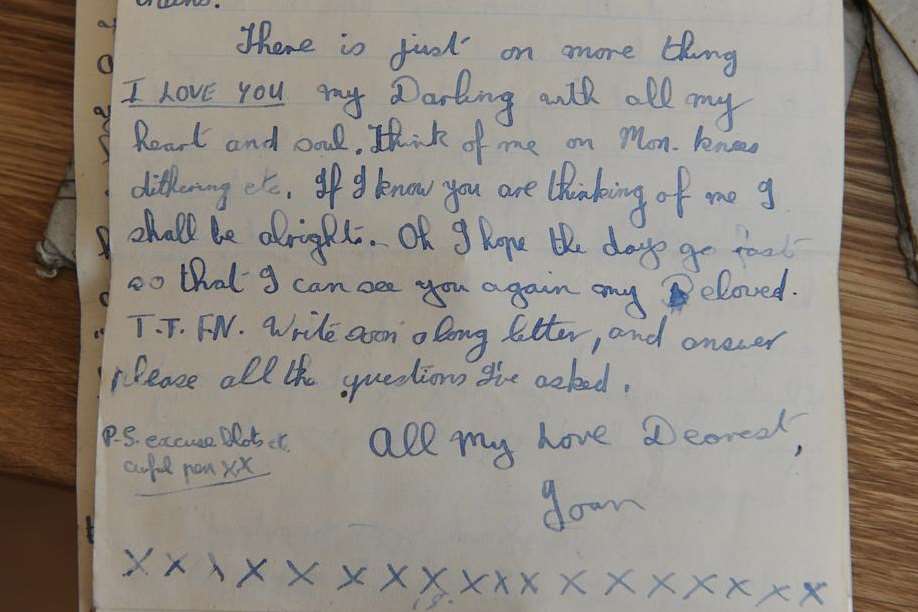 There is just on more thing
I LOVE YOU my Darling with all my
heart and soul. Think of me on Mon. knees
dithering etc. If I know you are thinking of me I
shall be alright. Oh I hope the days go fast
so that I can see you again my Beloved.
T.T.FN. Write soon a long letter, and answer
please all the questions I've asked.
P.S. excuse blots etc.
awful pen XX
All my Love Dearest,
Joan
X X X X X X X X X X X X X X X X X X